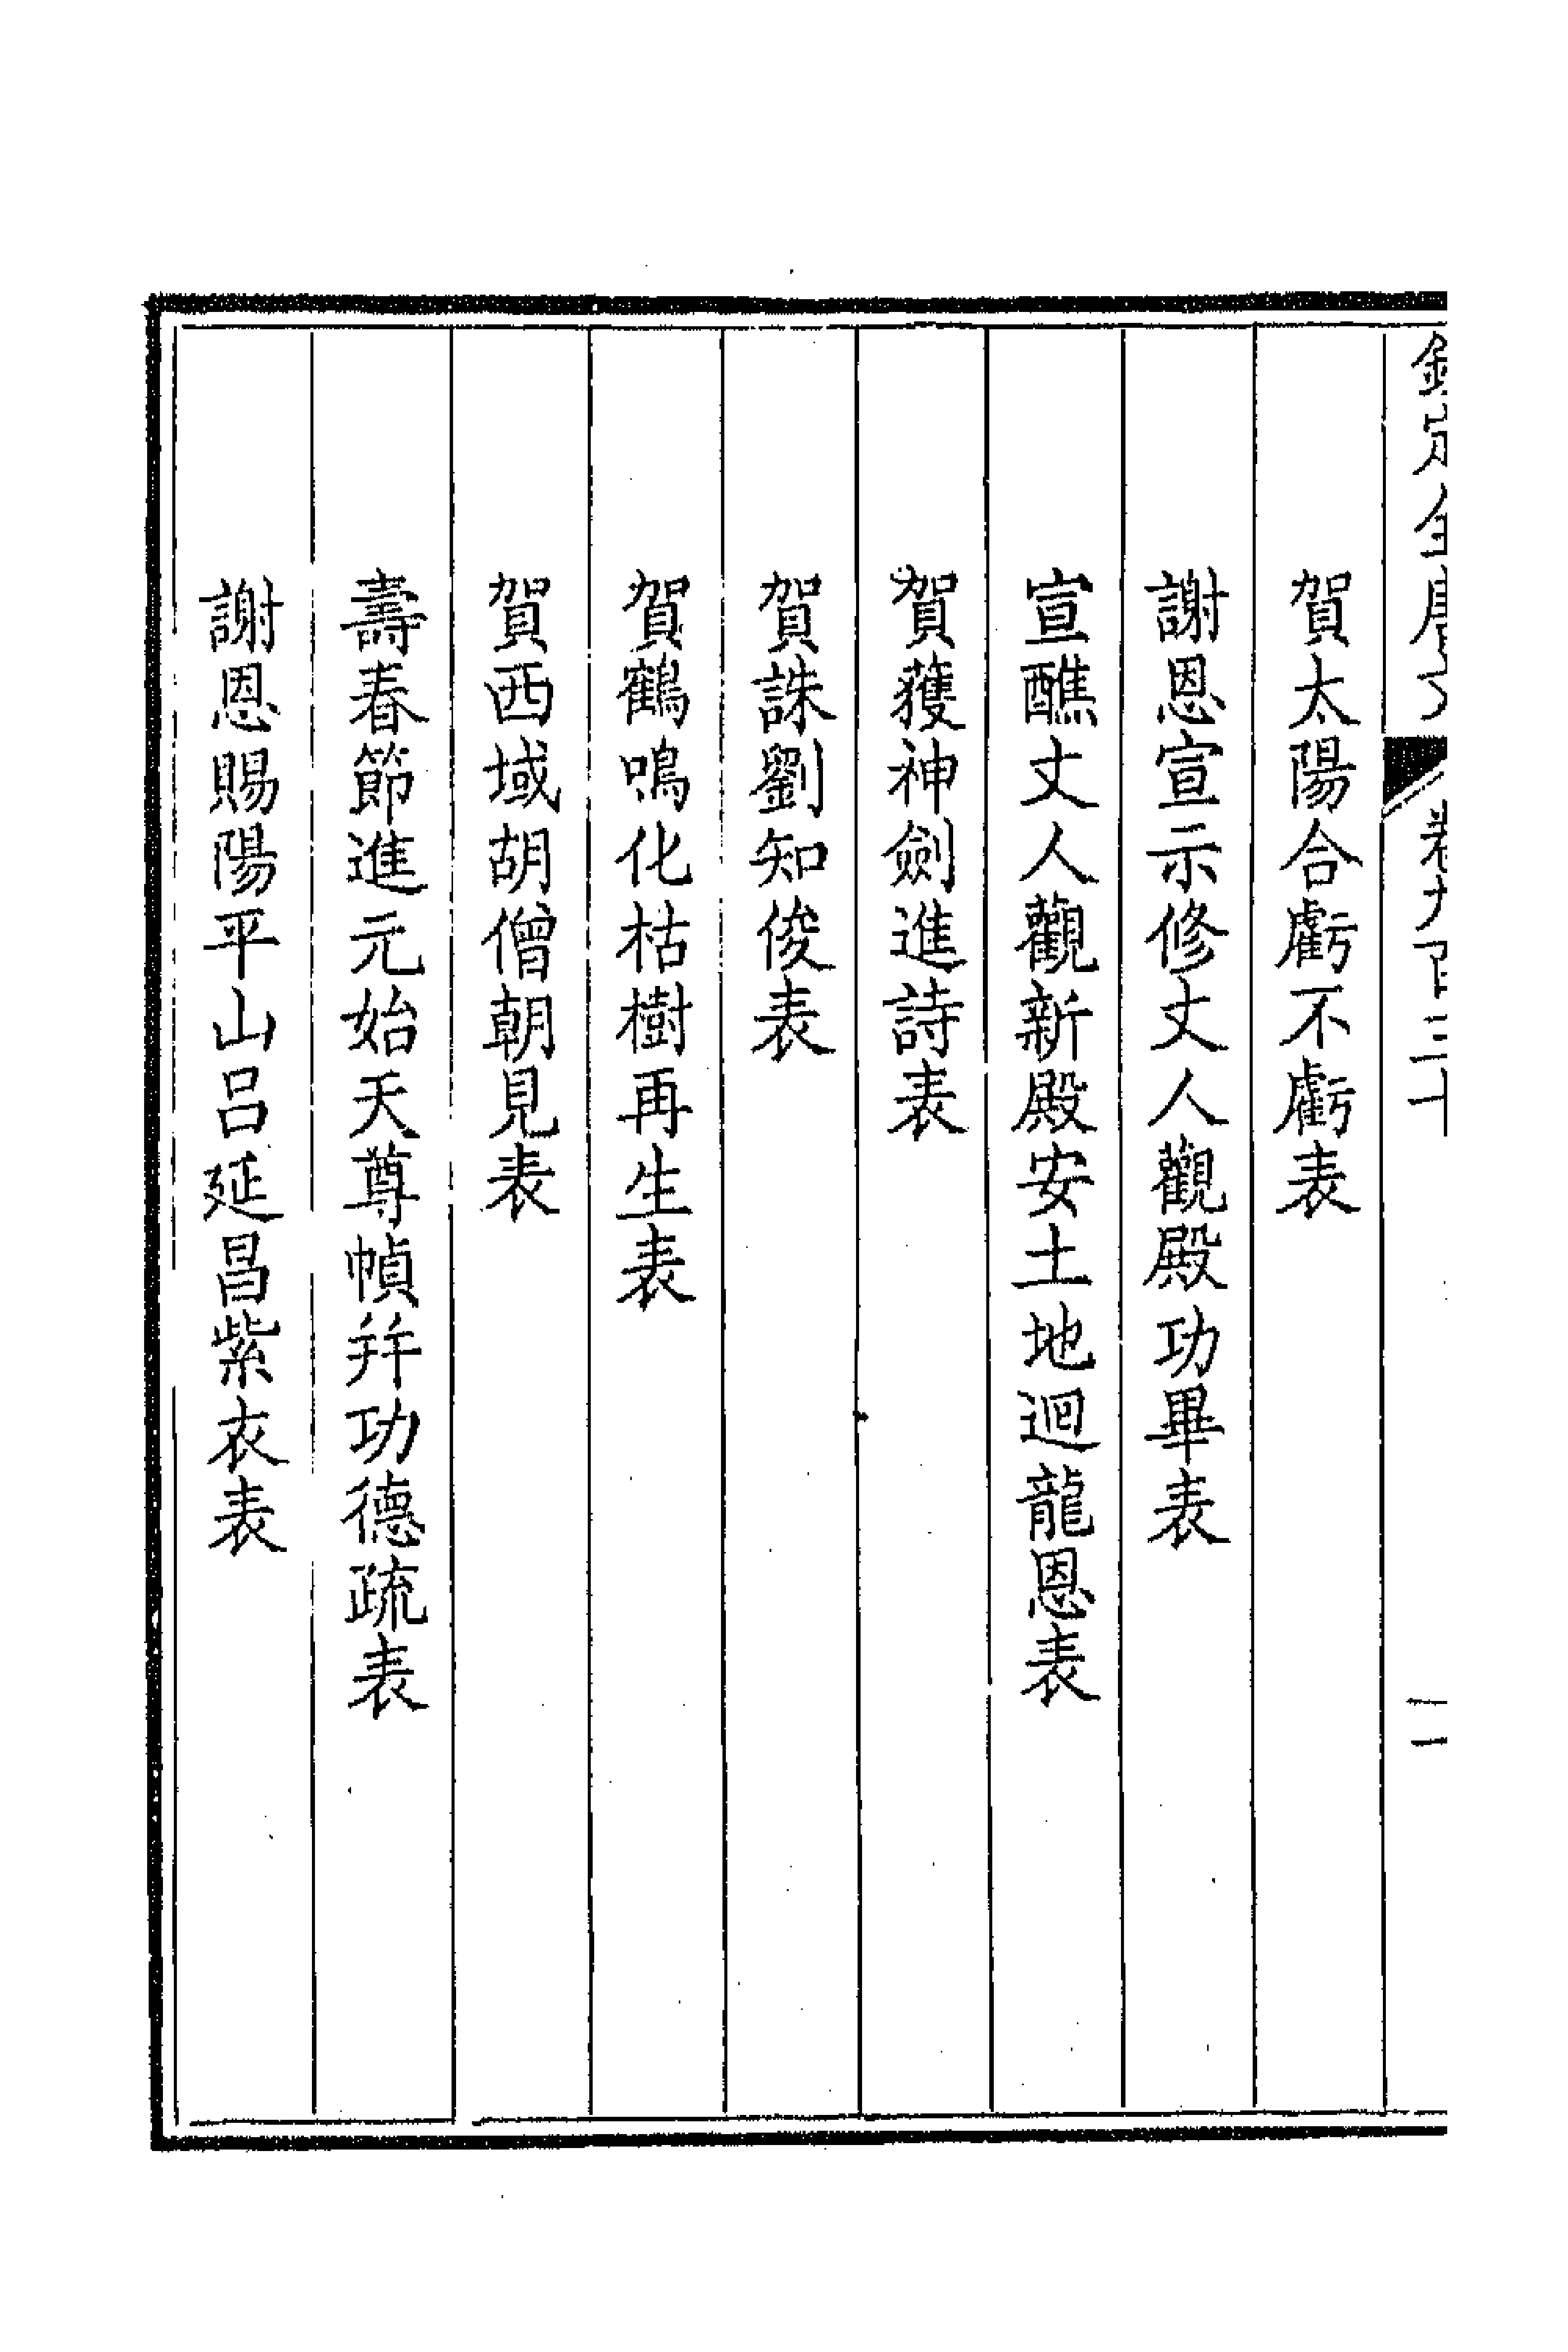 欽定全唐文 卷九百三十 二
賀太陽合虧不虧表
謝恩宣示修丈人觀殿功畢表
宣醮丈人觀新殿安土地迴龍恩表
賀獲神劍進詩表
賀誅劉知俊表
賀鶴鳴化枯樹再生表
賀西域胡僧朝見表
壽春節進元始天尊幀并功德疏表
謝恩賜陽平山呂延昌紫衣表